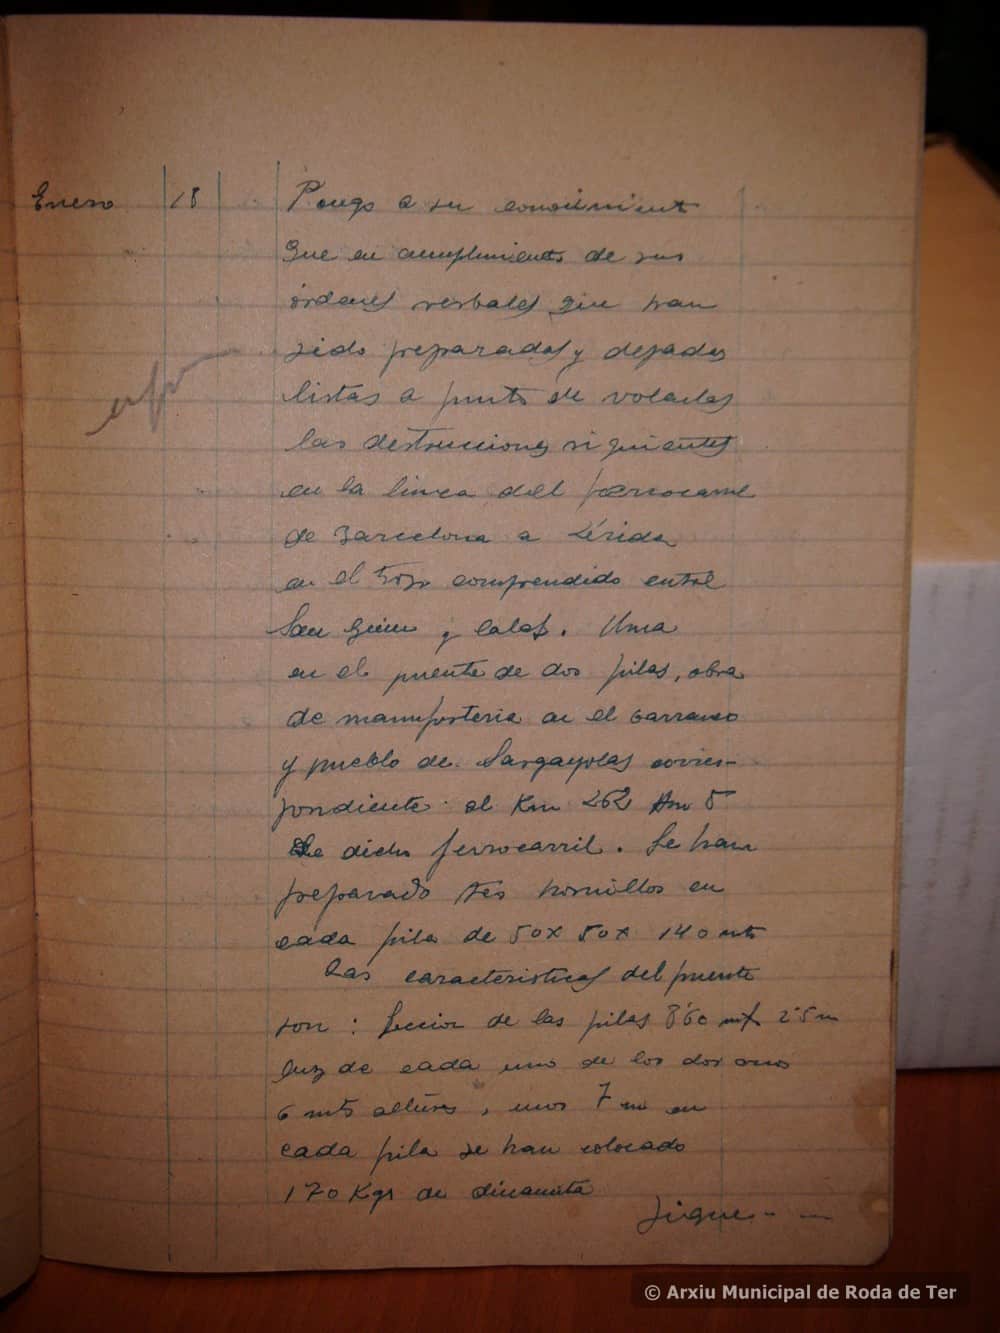 Enero 18 Pongo a su conocimiento
que en cumplimiento de sus
órdenes verbales que han
sido preparadas y dejadas
listas a punto de volarlas
las destrucciones siguientes
en la linea del ferrocarril
de Barcelona a Lérida
en el trozo comprendido entre
San Guim y Calaf. Una
en el puente de dos pilas, obra
de mamposteria en el barranco
y pueblo de Sargayolas corres-
pondiente al Km 262 Hm 5
de dicho ferrocarril. Se han
preparado tres hornillos en
cada pila de 50 x 50 x 140 mts
Las caracteristicas del puente
son: Seccion de las pilas 8'60 m x 2'5 m
luz de cada uno de los dos arcos
6 mts altura, unos 7 m en
cada pila se han colocado
170 Kgs de dinamita
Sigue - —
© Arxiu Municipal de Roda de Ter